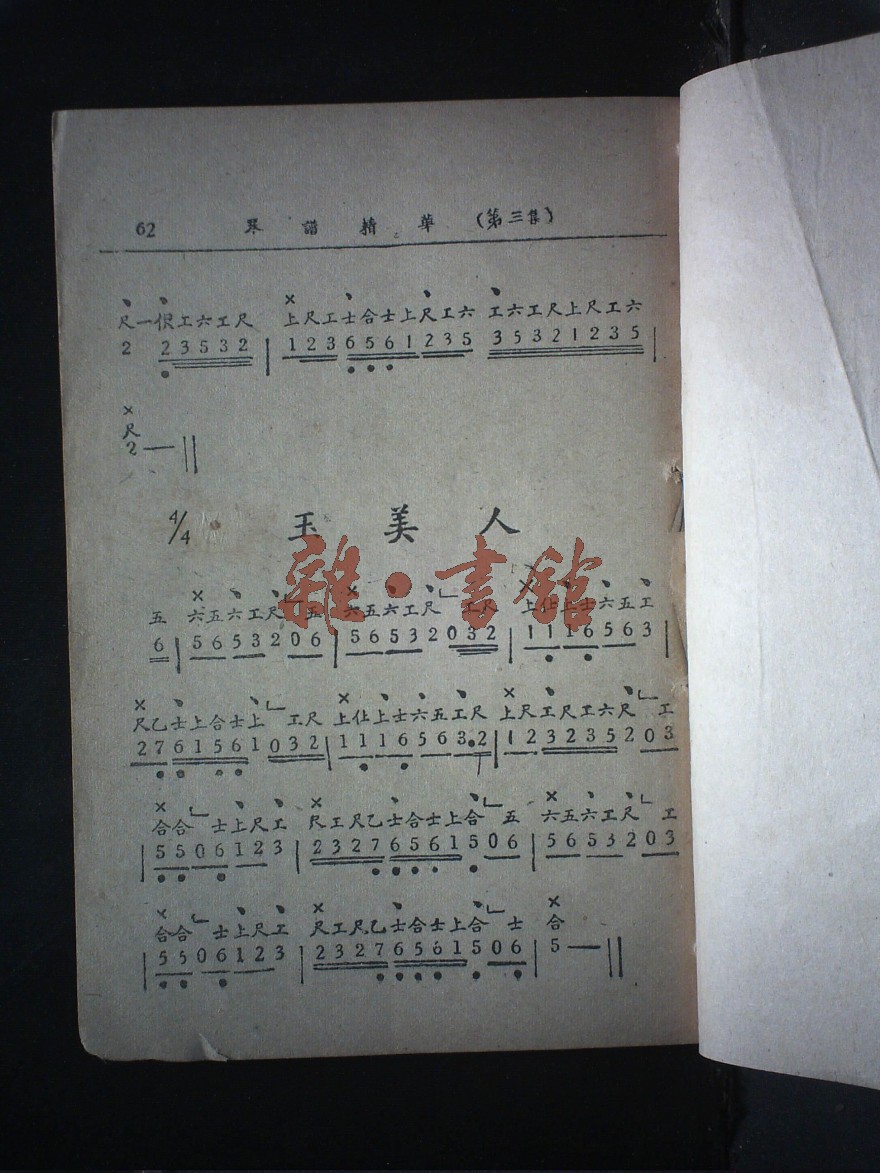 62 琴譜精華 (第三集)
尺一伬工六工尺 上尺工士合士上尺工六 工六工尺上尺工六
2 23532 | 123 6561 235 35321235 |
尺
2 — ||
4/4 玉美人
雜·書館
五 六五六工尺 五 六五六工尺 工尺 上仩上士六五工
6 | 5653206 | 56532032 | 1116563 |
尺乙士上合士上 工尺 上仩上士六五工尺 上尺工尺工六尺 工
2761561032 | 1116563.2 | 123235203
合合 士上尺工 尺工尺乙士合士上合 五 六五六工尺 工
| 5506123 | 23276561506 | 5653203
合合 士上尺工 尺工尺乙士合士上合 士 合
| 5506123 | 23276561506 | 5 — ||